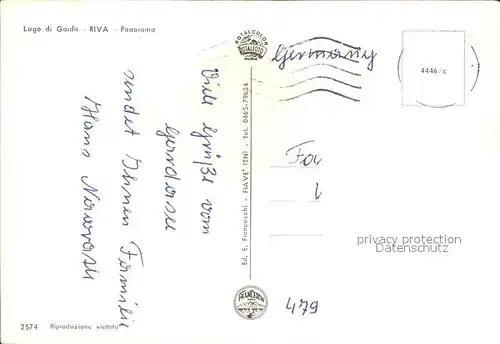 Lago di Garda - RIVA - Panorama
ROTALCOLOR
ROTALFOTO
MILANO
Germany
4446/c
Viele Grüße vom
Gardasee
sendet Ihnen Familie
Hans
Ed. E. Franceschi - FIAVE' (TN) - Tel. 0465-79634
Fa
privacy protection
Datenschutz
FRANCESCHI
479
2574 Riproduzione vietata